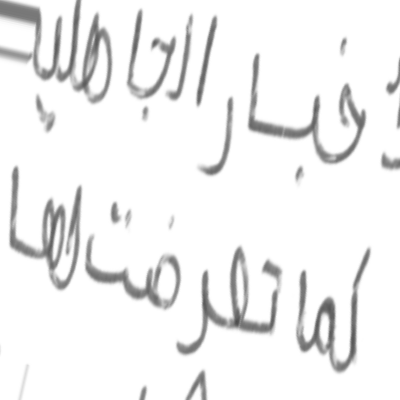 خبار الجاهلية
كما تعرضت لها